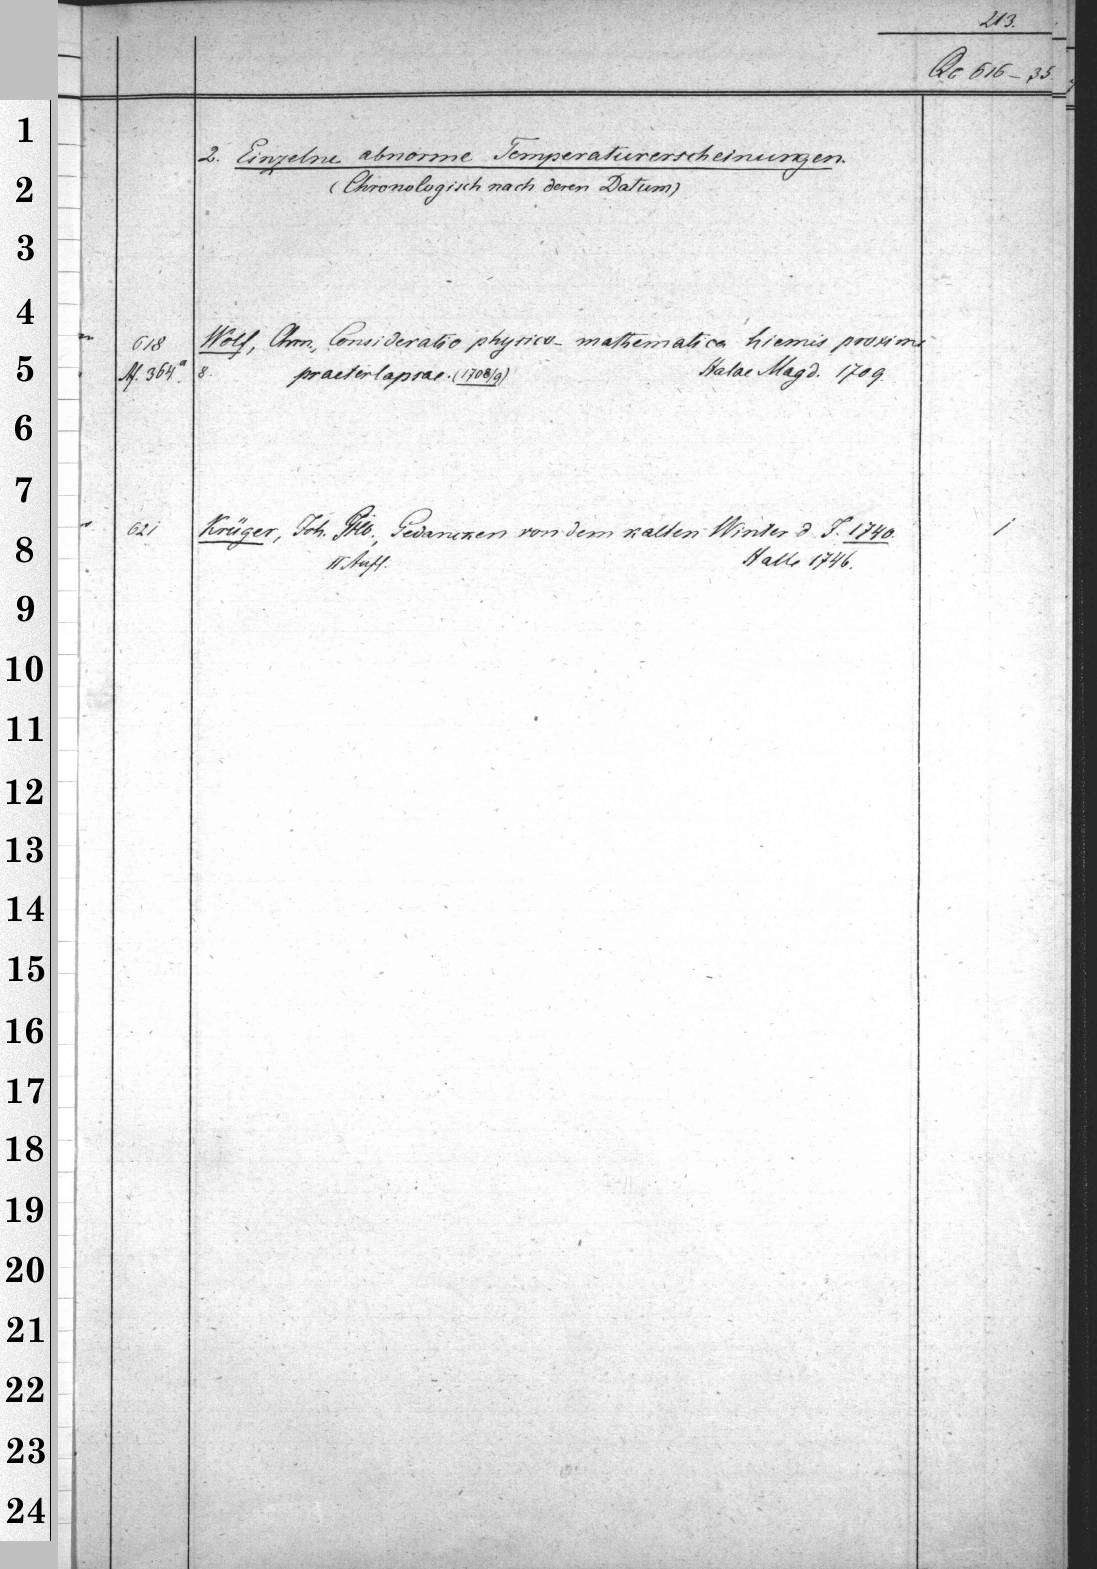 213.
Qc 616-35.
1
2. Einzelne abnorme Temperaturerscheinungen.
2
(Chronologisch nach deren Datum)
3
4
618 Wolf, Chrn., Consideratio physico-mathematica hiemis proxime
5
Af. 364a. 8. praeterlapsae. (1708/9) Halae Magd. 1709
6
7
621 Krüger, Joh. Gtlb., Gedancken von dem kalten Winter d. J. 1740. 1
8
II Aufl. Halle 1746.
9
10
11
12
13
14
15
16
17
18
19
20
21
22
23
24